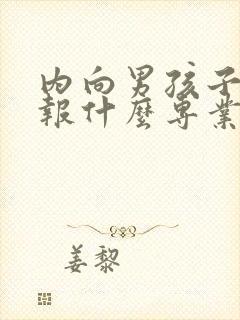 内向男孩子
報什麼專業
姜黎